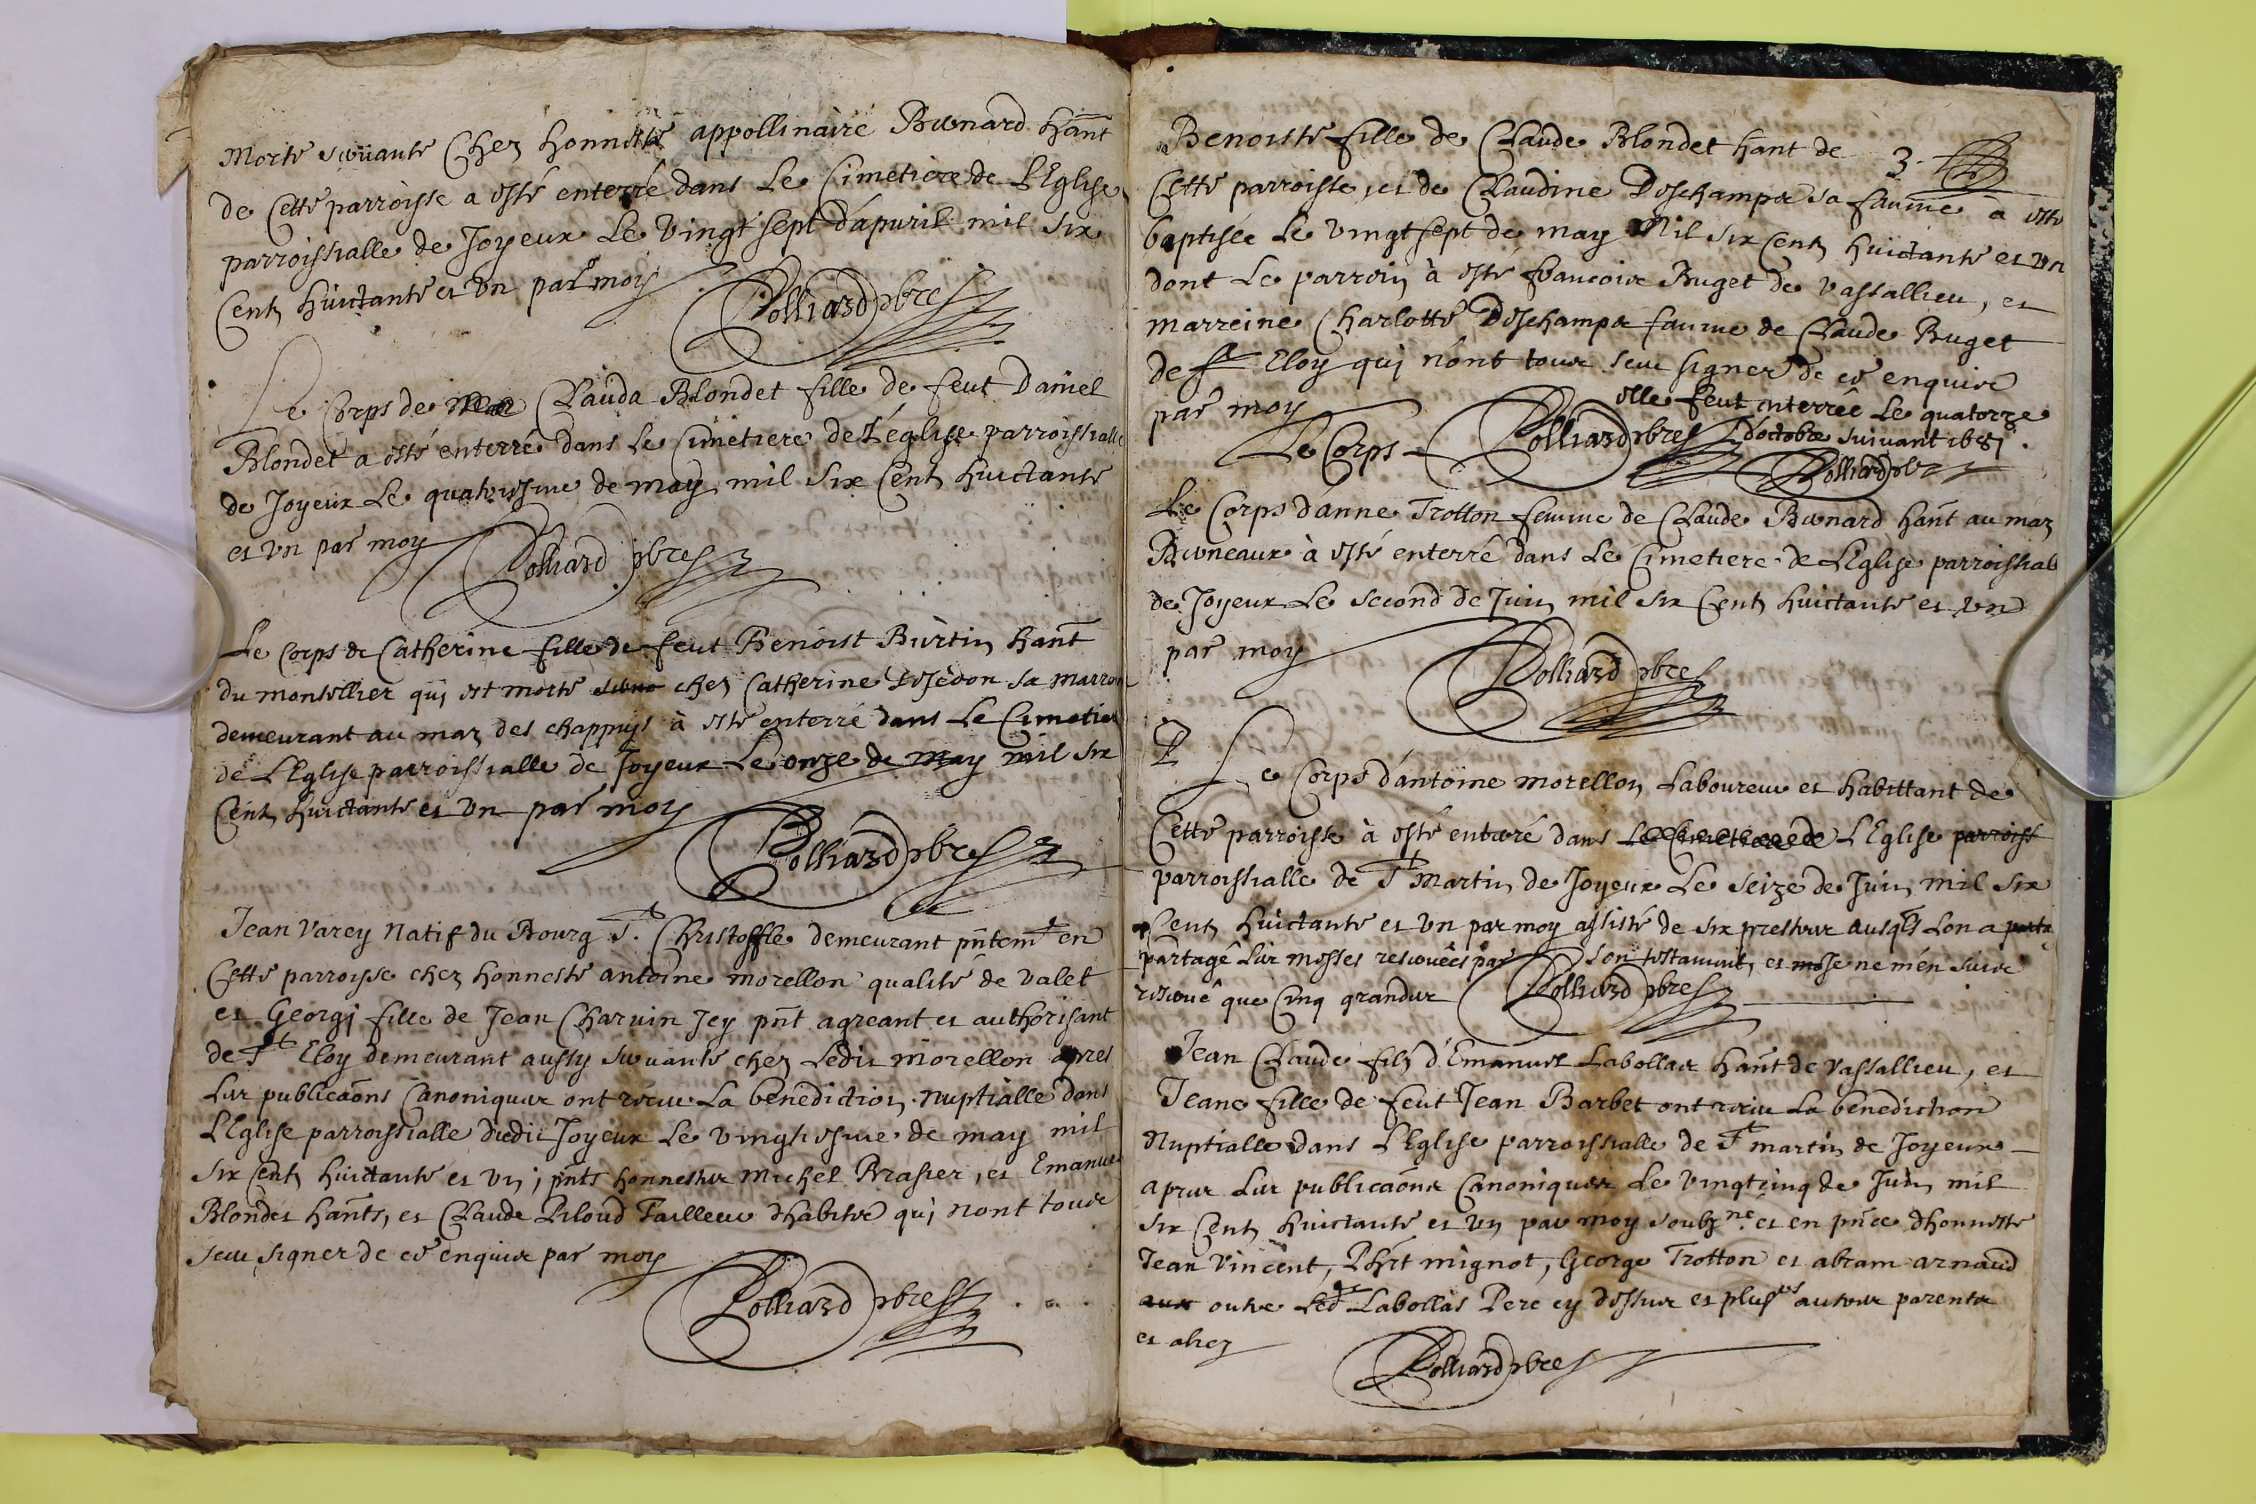 Morte servante Chez honneste appollinaire Bernard hant
de Cette parroisse a esté enterré dans Le Cimetiere de L'Eglise
parroissialle de Joyeux Le vingt sept d'apuril mil six
Cents huictante et un par moy
Polliard pbre
Le Corps de Clauda Blondet fille de feut Daniel
Blondet a esté enterré dans Le Cimetiere de L'église parroissialle
de Joyeux Le quatriesme de may mil six Cents huictante
et vn par moy
Polliard pbre
Le Corps de Catherine fille de feut Benoist Burtin hant
du montellier qui est morte chez Catherine sa marrone
demeurant au maz des chappuys à esté enterré dans Le Cimetiere
de L'Eglise parroissialle de Joyeux Le onze de may mil six
Cents huictante et vn par moy
Polliard pbre
Jean Varey Natif du Bourg St. Christoffle demeurant pntemt en
Cette parroisse chez honneste antoine morellon qualité de valet
et Georgj fille de Jean Charvin Jcy pnt agreant et authorisant
de St Eloy demeurant aussy servante chez Ledit morellon apres
Lur publicaons Canoniques ont receu La benediction nuptialle dans
L'Eglise parroissialle dudit Joyeux Le vingtiesme de may mil
six Cents huictante et vn, pnts honnestes Michel Brasier, et Emanuel
Blondet hants, et Claude Tailleur d'habits qui n'ont tous
seu signer de ce enquis par moy
Polliard pbre
3
Benoiste fille de Claude Blondet hant de
Cette parroisse, et de Claudine Deschamps sa famme à esté
baptisée Le vingt sept de may Mil six Cents huictante et vn
dont Le parrein à esté francois Buget de Vassallieu, et
marreine Charlotte Deschamps famme de Claude Buget
de St Eloy qui n'ont tous seu signer de ce enquis
par moy
Polliard pbre
elle feut enterrée Le quatorze
d'octobre suivant 1681.
Polliard pbre
Le Corps
Le Corps d'anne Trotton femme de Claude Bernard hant au maz
Berneaux à esté enterré dans Le Cimetiere de L'Eglise parroissialle
de Joyeux Le second de Juin mil six Cents huictante et vn
par moy
Polliard pbre
Le Corps d'antoine morellon Laboureur et habittant de
Cette parroisse à esté enterré dans Le Cimetiere de L'Eglise parroiss
parroissialle de St Martin de Joyeux Le seize de Juin mil six
Cents huictante et vn par moy assisté de six prestres ausqls Lon a
partagé Lur messes par son testament, et ne m'en suis
reservé que Cinq grandes
Polliard pbre
Jean Claude fils d'Emanuel Labollas hant de Vassallieu, et
Jeane fille de feut Jean Barbet ont receu La benediction
Nuptialle dans L'Eglise parroissialle de St martin de Joyeux
apres Lur publicaons Canoniques Le vingt cinq de Juin mil
six Cents huictante et vn par moy soubzne. et en pnce d'honneste
Jean Vincent, Phrt mignot, George Trotton et abram arnaud
outre Ledt Labollas Pere cy dessus et plusrs autres parents
et aliez
Polliard pbre